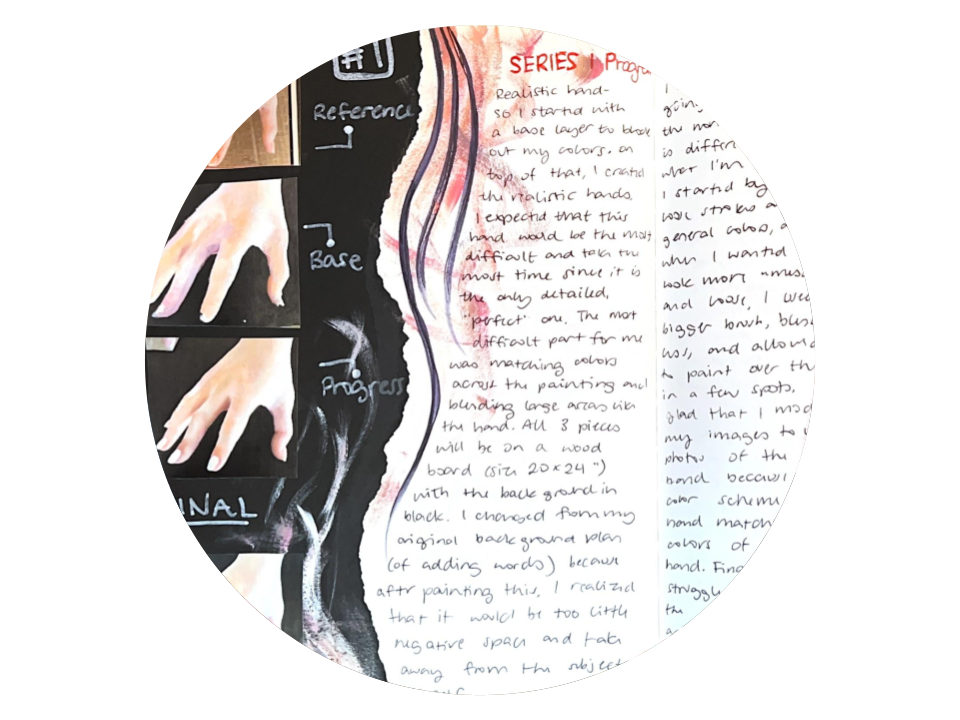 #1
Reference
Base
Progress
INAL
SERIES 1 Progre
Realistic hand-
so I started with
a base layer to block
out my colors. on
top of that, I created
the realistic hands.
I expected that this
hand would be the most
difficult and take the
most time since it is
the only detailed,
"perfect" one. The most
difficult part for me
was matching colors
across the painting and
blending large areas like
the hand. All 3 pieces
will be on a wood
board (size 20x24")
with the background in
black. I changed from my
original background plan
(of adding words) because
after painting this, I realized
that it would be too little
negative space and take
away from the subject
I
going
the mor
is differ
what I'm
I started by
look strokes a
general colors, a
when I wanted
look more "mess
and loose, I used
bigger brush, blend
less, and allowed
to paint over th
in a few spots.
glad that I mod
my images to
photos of the
hand because
color scheme
hand match
colors of
hand. Fina
struggle
the